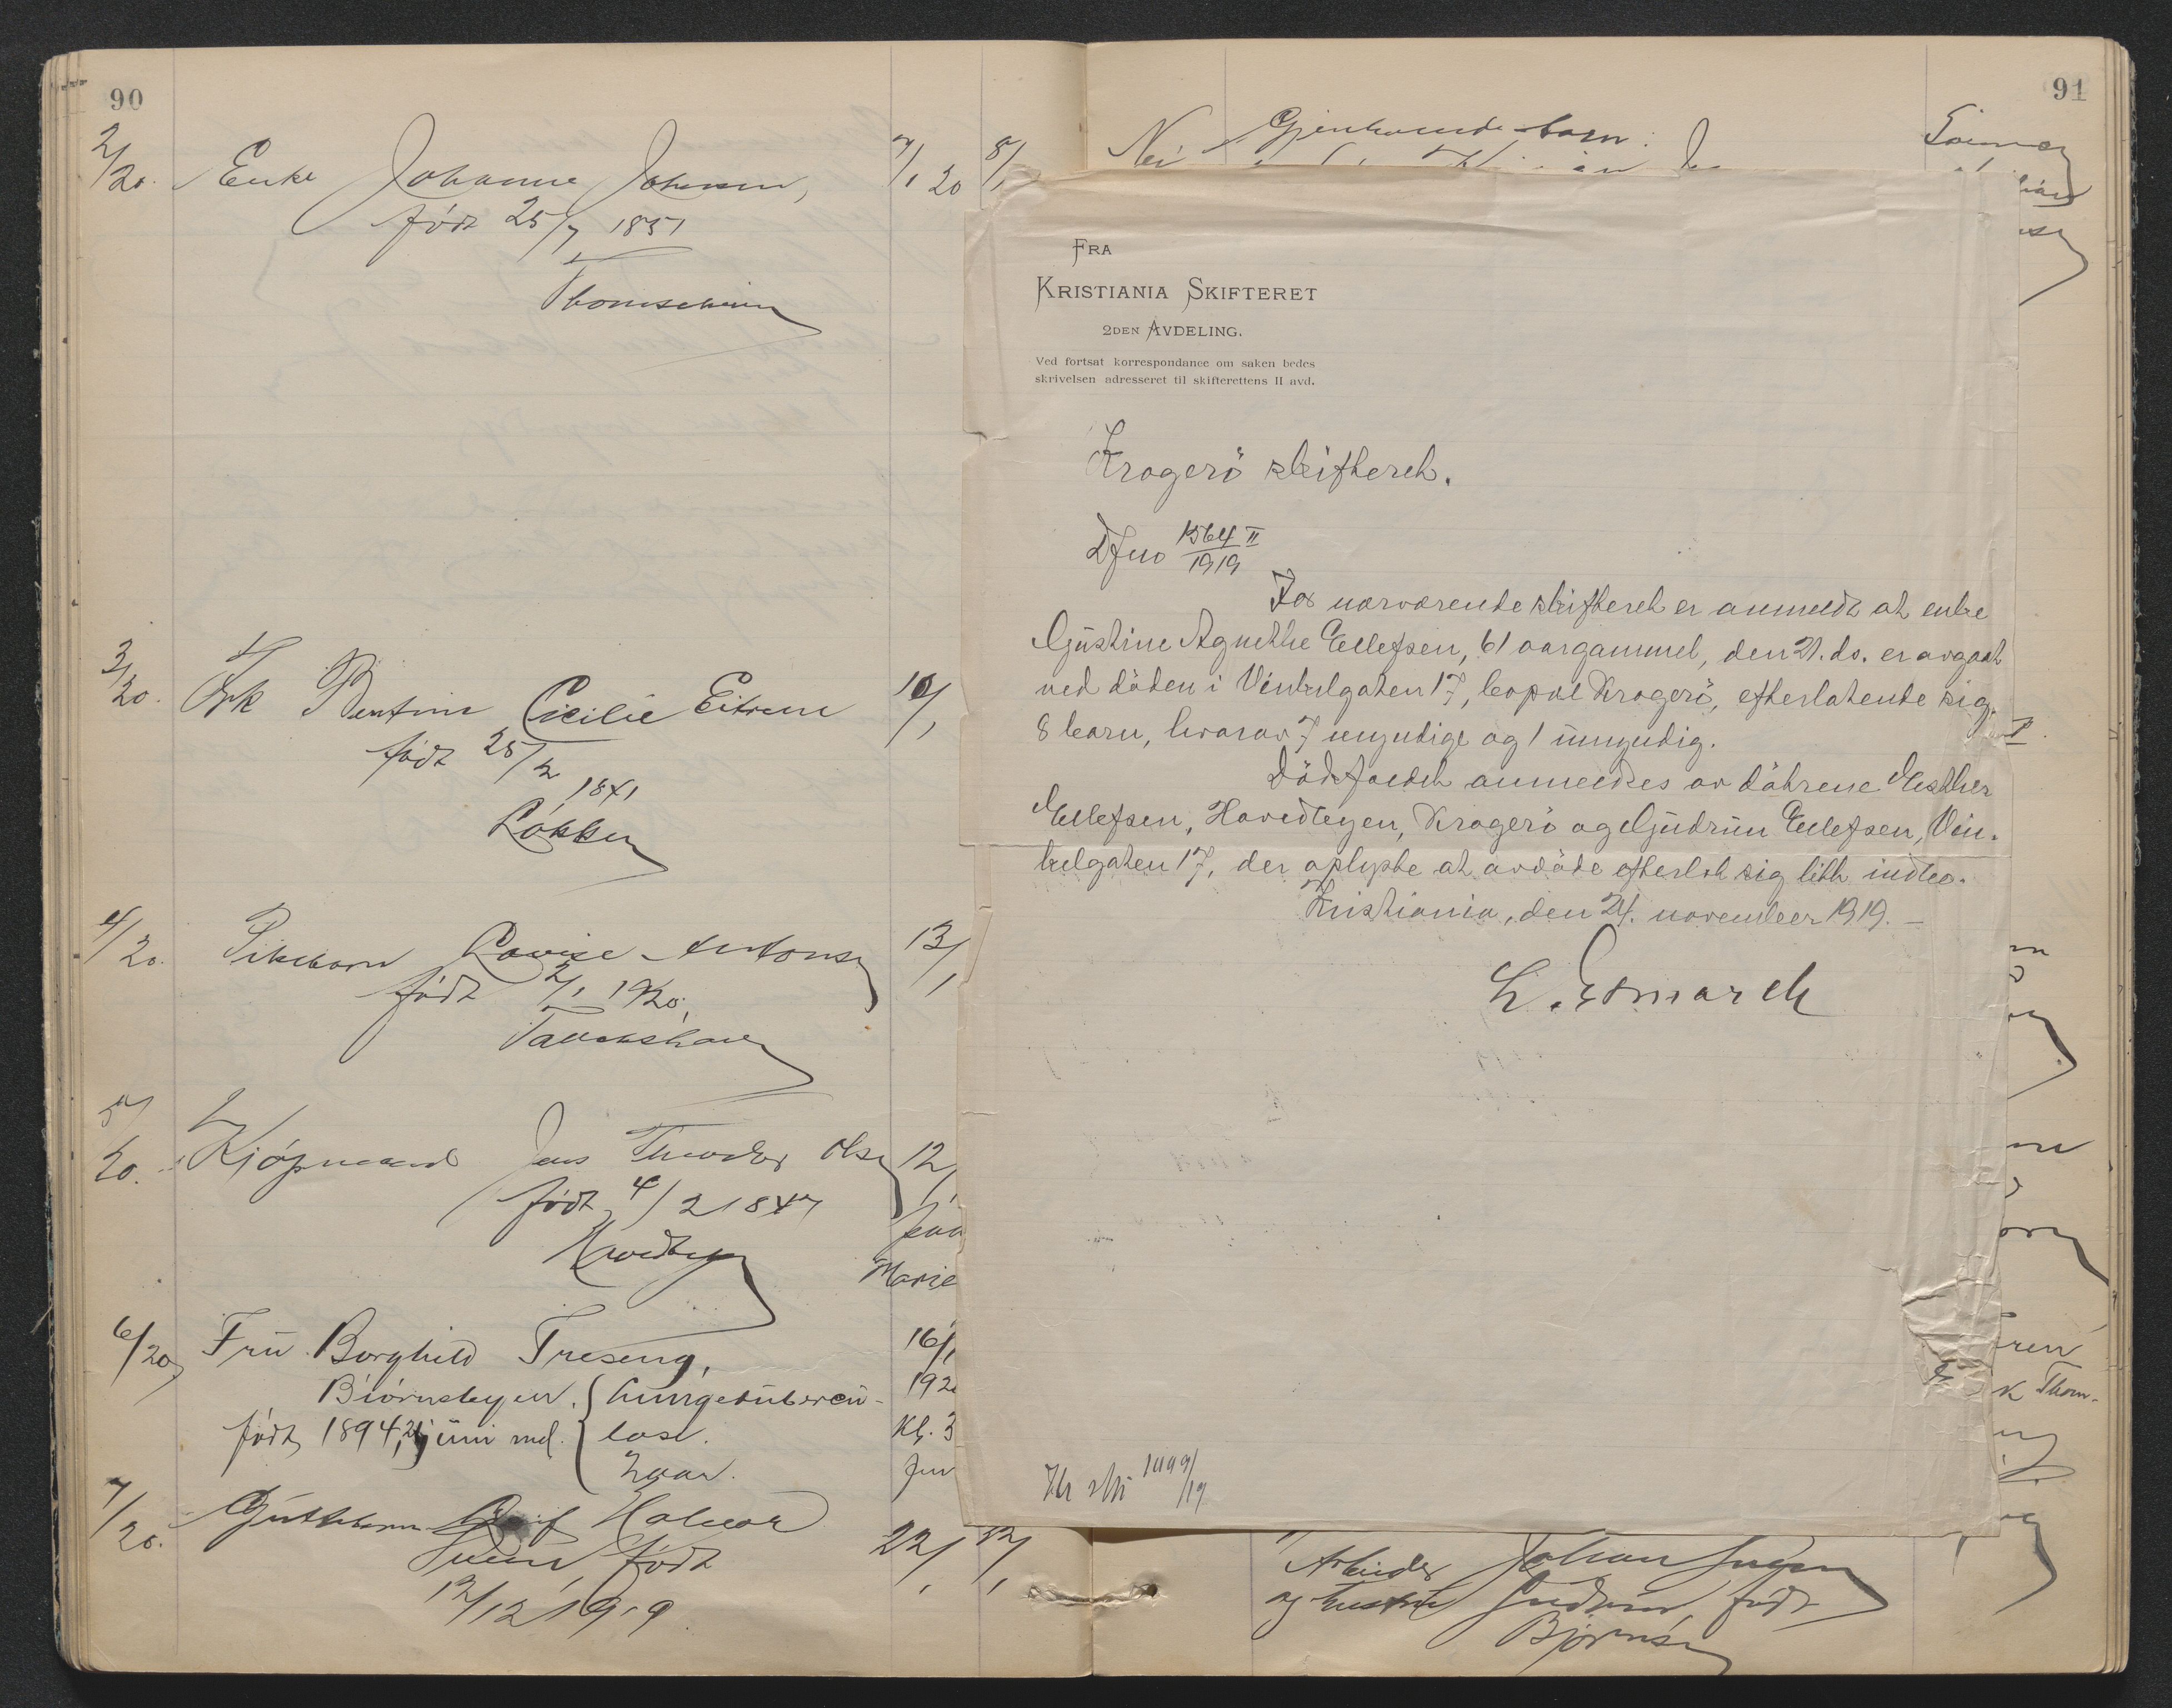 90
2/20. Enke Johanne Johnsen, 7/1 20 8/1
født 25/7 1851
3/20. Frk Bentine Cicilie Eitrem 10/1
født 25/2 1841
Løkken
4/20. Pikebarn Lovise Antonsen 13/1
født 2/1 1920,
5/20. Kjøpmand Jens Theodor Olsen 12/
født 4/2 1847
Marie
6/20 Fru Borghild Treseng, 16/1
Biørnsbyen. lungetubercu- 192
født 1894, 24 juni md. lose. Kl. 3
2 aar.
7/20. Guttebarn Halvor 22/1
født
12/12 1919.
91
Nei Gjenlevende barn:
FRA
KRISTIANIA SKIFTERET
2DEN AVDELING.
Ved fortsat korrespondance om saken bedes
skrivelsen adresseret til skifterettens II avd.
Kragerö skifteret.
Dfno 1564 II
1919
For nærværende skifteret er anmeldt at enke
Gustine Agnethe Ellefsen, 61 aar gammel, den 21. ds. er avgaat
ved döden i Vinkelgaten 17, bopæl Kragerö, efterlatende sig
8 barn, hvorav 7 myndige og 1 umyndig.
Dödsfaldet anmeldtes av döttrene Esther
Ellefsen, Hovedveyen, Kragerö og Gudrun Ellefsen, Vin-
kelgaten 17, der oplyste at avdöde efterlot sig litt indbo.
Kristiania, den 24. november 1919. –
L. Esmarch
1499/19
ren
k Thom-
Arbeider Johan
og hustru Gudrun, født